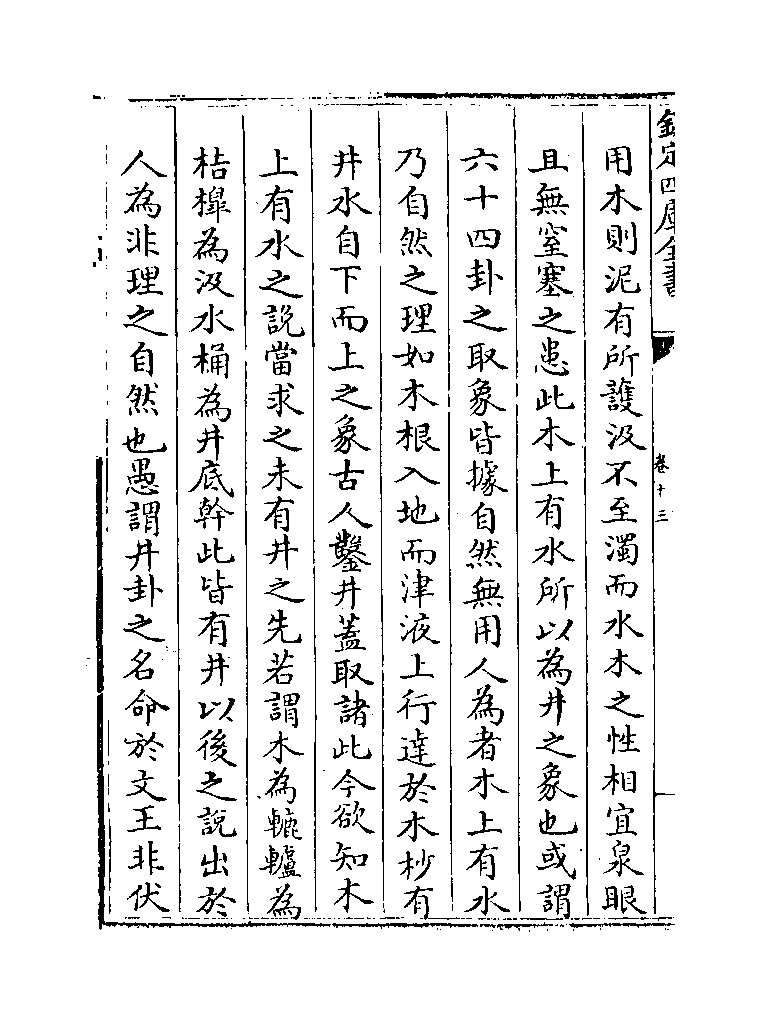 欽定四庫全書
卷十三
用木則泥有所護汲不至濁而水木之性相宜泉眼
且無窒塞之患此木上有水所以為井之象也或謂
六十四卦之取象皆據自然無用人為者木上有水
乃自然之理如木根入地而津液上行達於木杪有
井水自下而上之象古人鑿井蓋取諸此今欲知木
上有水之說當求之未有井之先若謂木為轆轤為
桔槹為汲水桶為井底幹此皆有井以後之說出於
人為非理之自然也愚謂井卦之名命於文王非伏